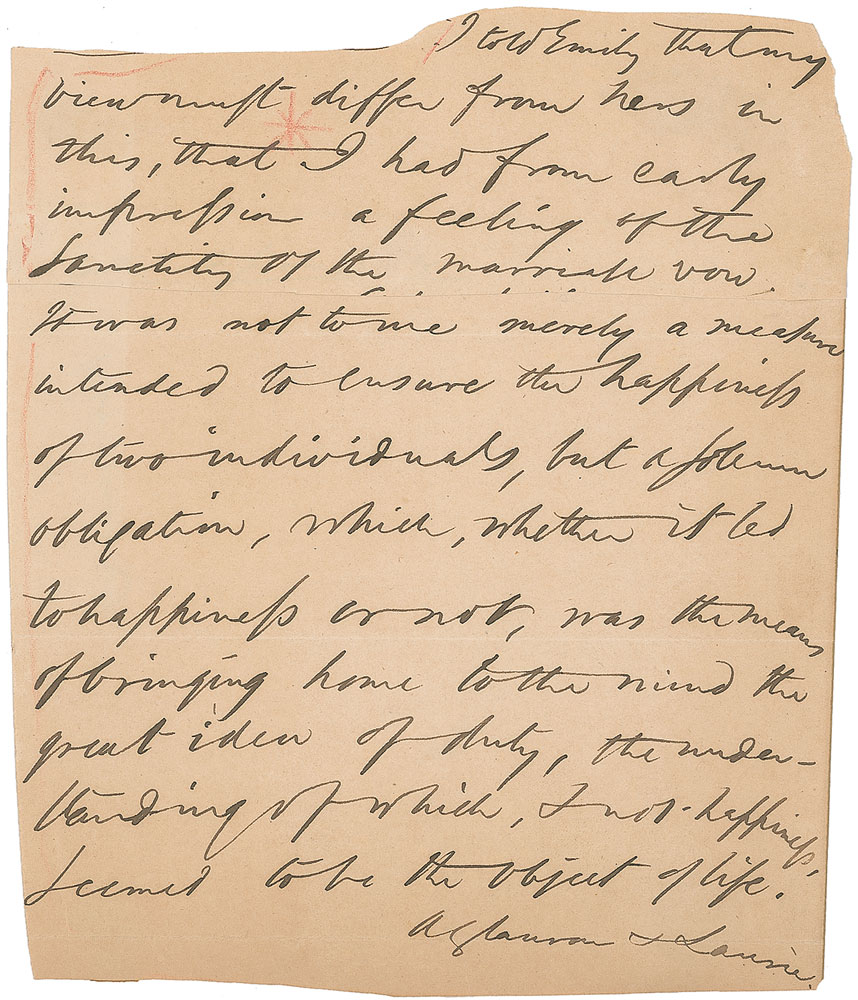 I told Emily that my
view must differ from hers in
this, that I had from early
impression a feeling of the
Sanctity of the marriage vow.
It was not to me merely a measure
intended to ensure the happiness
of two individuals, but a solemn
obligation, which, whether it led
to happiness or not, was the means
of bringing home to the mind the
great idea of duty, the under-
standing of which, & not happiness,
seemed to be the object of life.
Aglauron & Laurie.